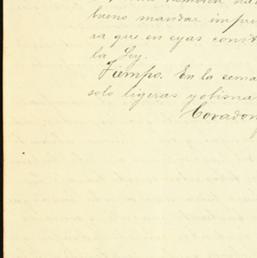 bueno mandar impri
ra que en eyas consti
la Ley.
Tiempo. En la sema
solo ligeras yobisna
Covadon